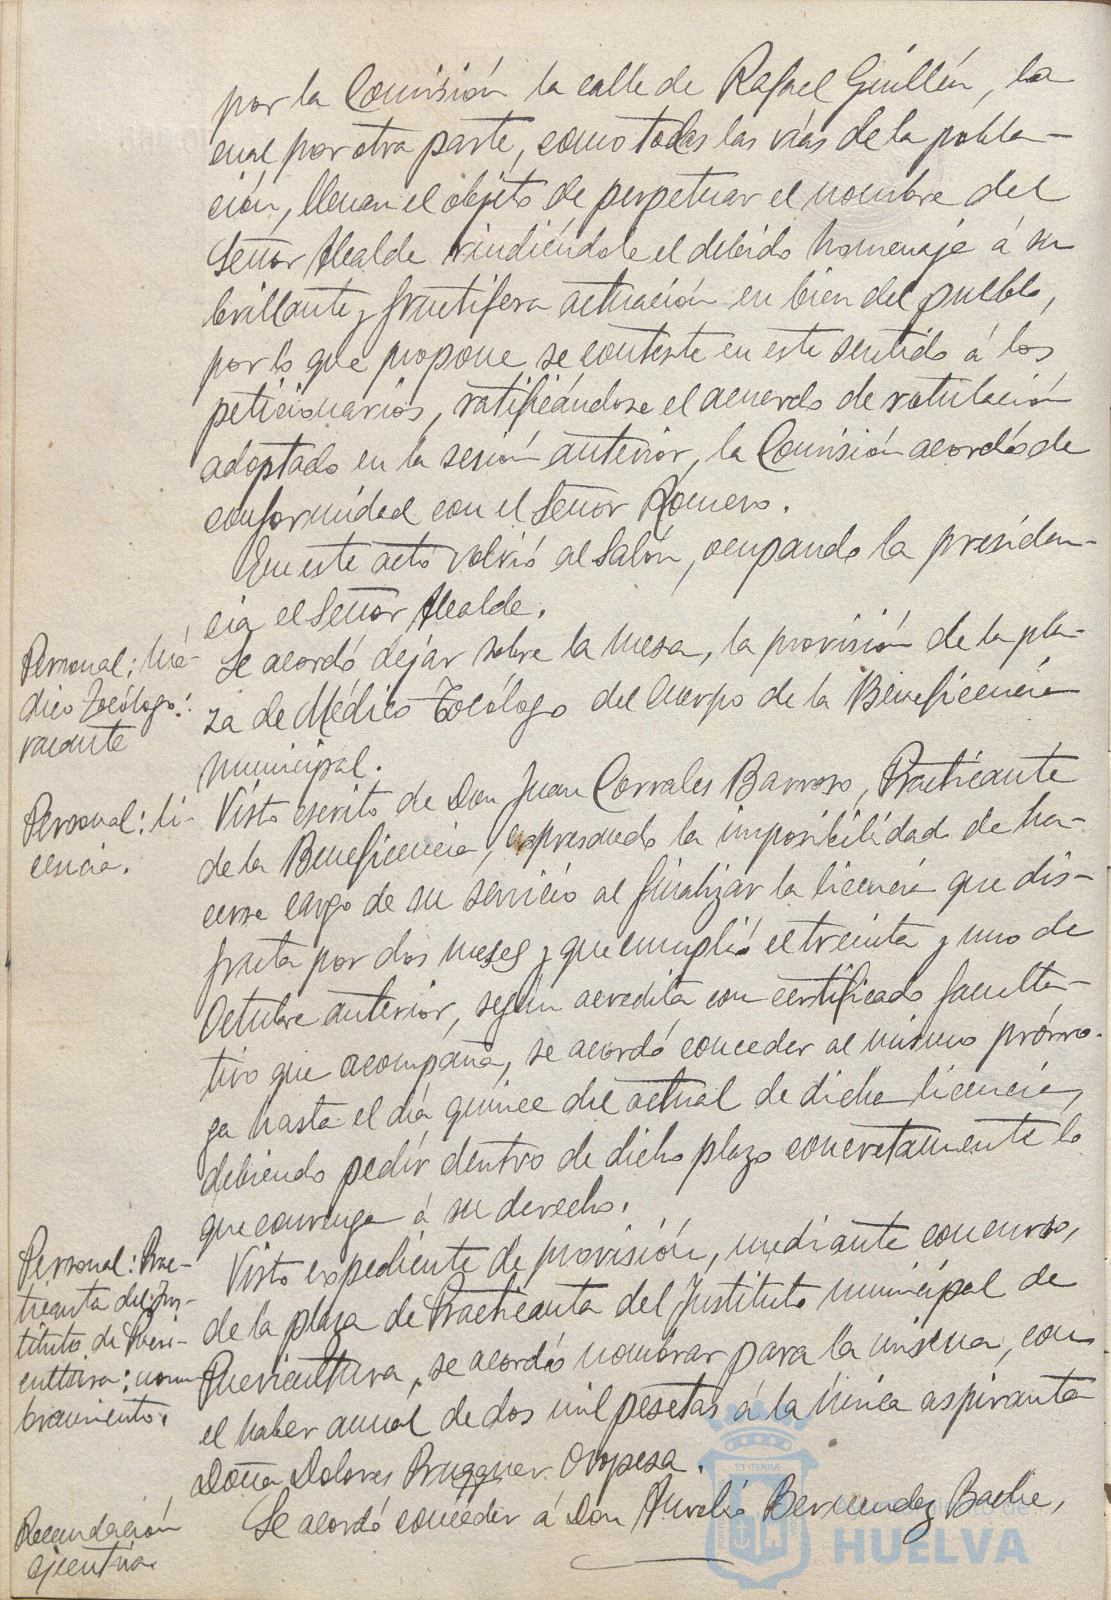 por la Comisión la calle de Rafael Guillén, la
cual por otra parte, como todas las vías de la pobla-
ción, llenan el objeto de perpetuar el nombre del
Señor Alcalde rindiéndole el debido homenaje á su
brillante y fructífera actuación en bien del pueblo,
por lo que propone se conteste en este sentido á los
peticionarios, ratificándose el acuerdo de rotulación
adoptado en la sesión anterior, la Comisión acordó de
conformidad con el Señor Romero.
En este acto volvió al Salón, ocupando la presiden-
cia el Señor Alcalde.
Personal: Mé-
dico Tocólogo:
vacante
Se acordó dejar sobre la mesa, la provisión de la pla-
za de Médico Tocólogo del Cuerpo de la Beneficencia
municipal.
Personal: li-
cencia.
Visto escrito de Don Juan Corrales Barroso, Practicante
de la Beneficencia, expresando la imposibilidad de ha-
cerse cargo de su servicio al finalizar la licencia que dis-
fruta por dos meses y que cumplió el treinta y uno de
Octubre anterior, según acredita con certificado faculta-
tivo que acompaña, se acordó conceder al mismo prórro-
ga hasta el día quince del actual de dicha licencia,
debiendo pedir dentro de dicho plazo concretamente lo
que convenga á su derecho.
Personal: Prac-
ticanta del Ins-
tituto de Pueri-
cultura: nom-
bramiento.
Visto expediente de provisión, mediante concurso,
de la plaza de Practicanta del Instituto municipal de
Puericultura, se acordó nombrar para la misma, con
el haber anual de dos mil pesetas á la única aspiranta
Doña Dolores Brugguer Oropesa.
Recaudación
ejecutiva.
Se acordó conceder á Don Aurelio Bermudez Bache,
HUELVA